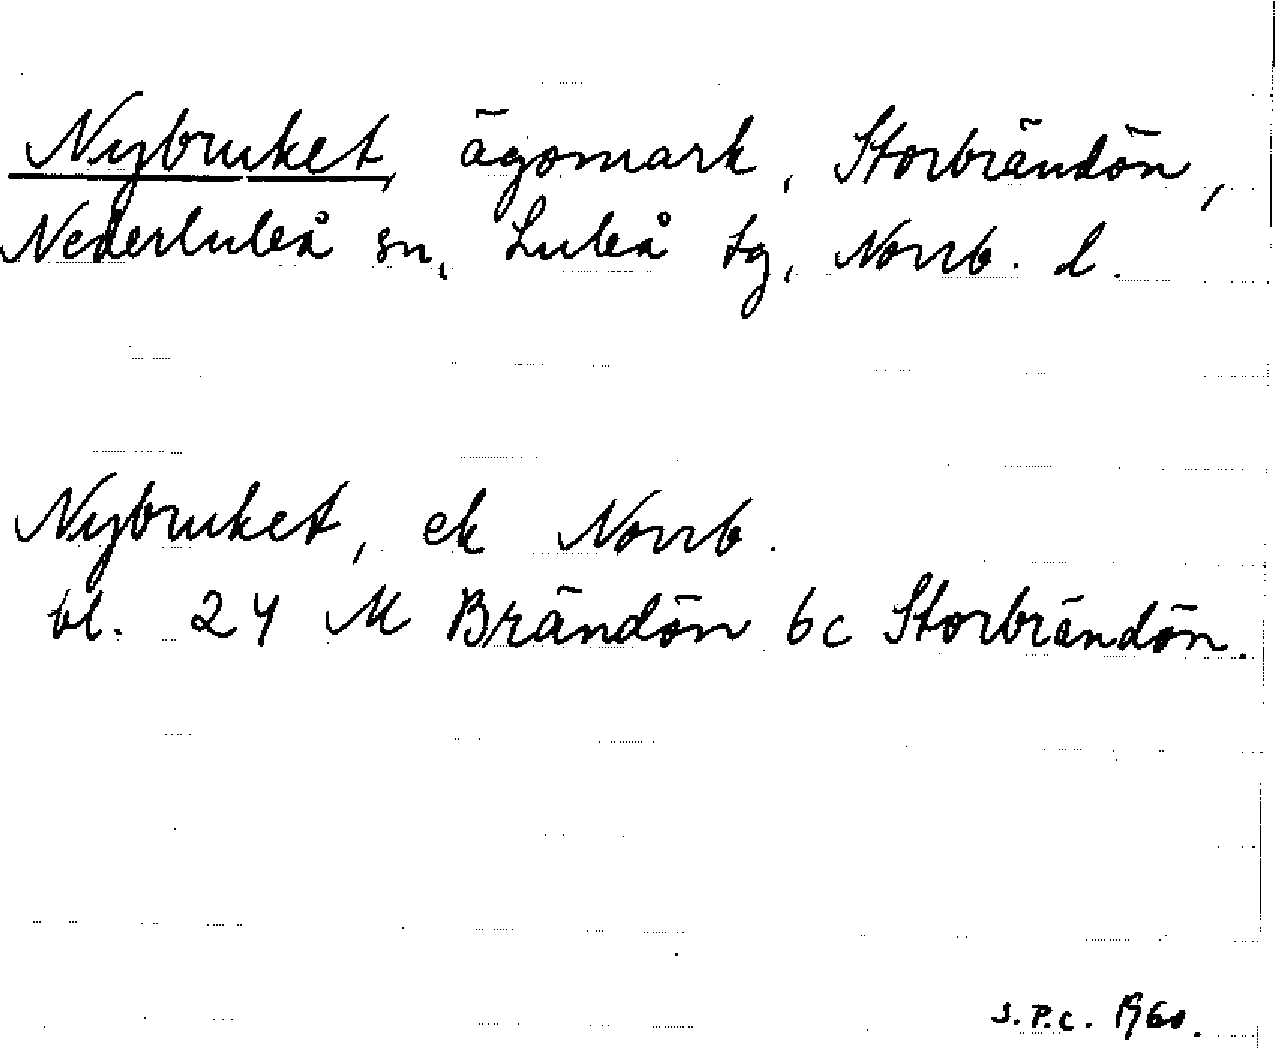 Nybruket, ägomark, Storbrändön,
Nederluleå sn, Luleå tg, Norrb. l.
Nybruket, ek Norrb.
bl. 24 M Brändön 6c Storbrändön.
S.P.C. 1960.